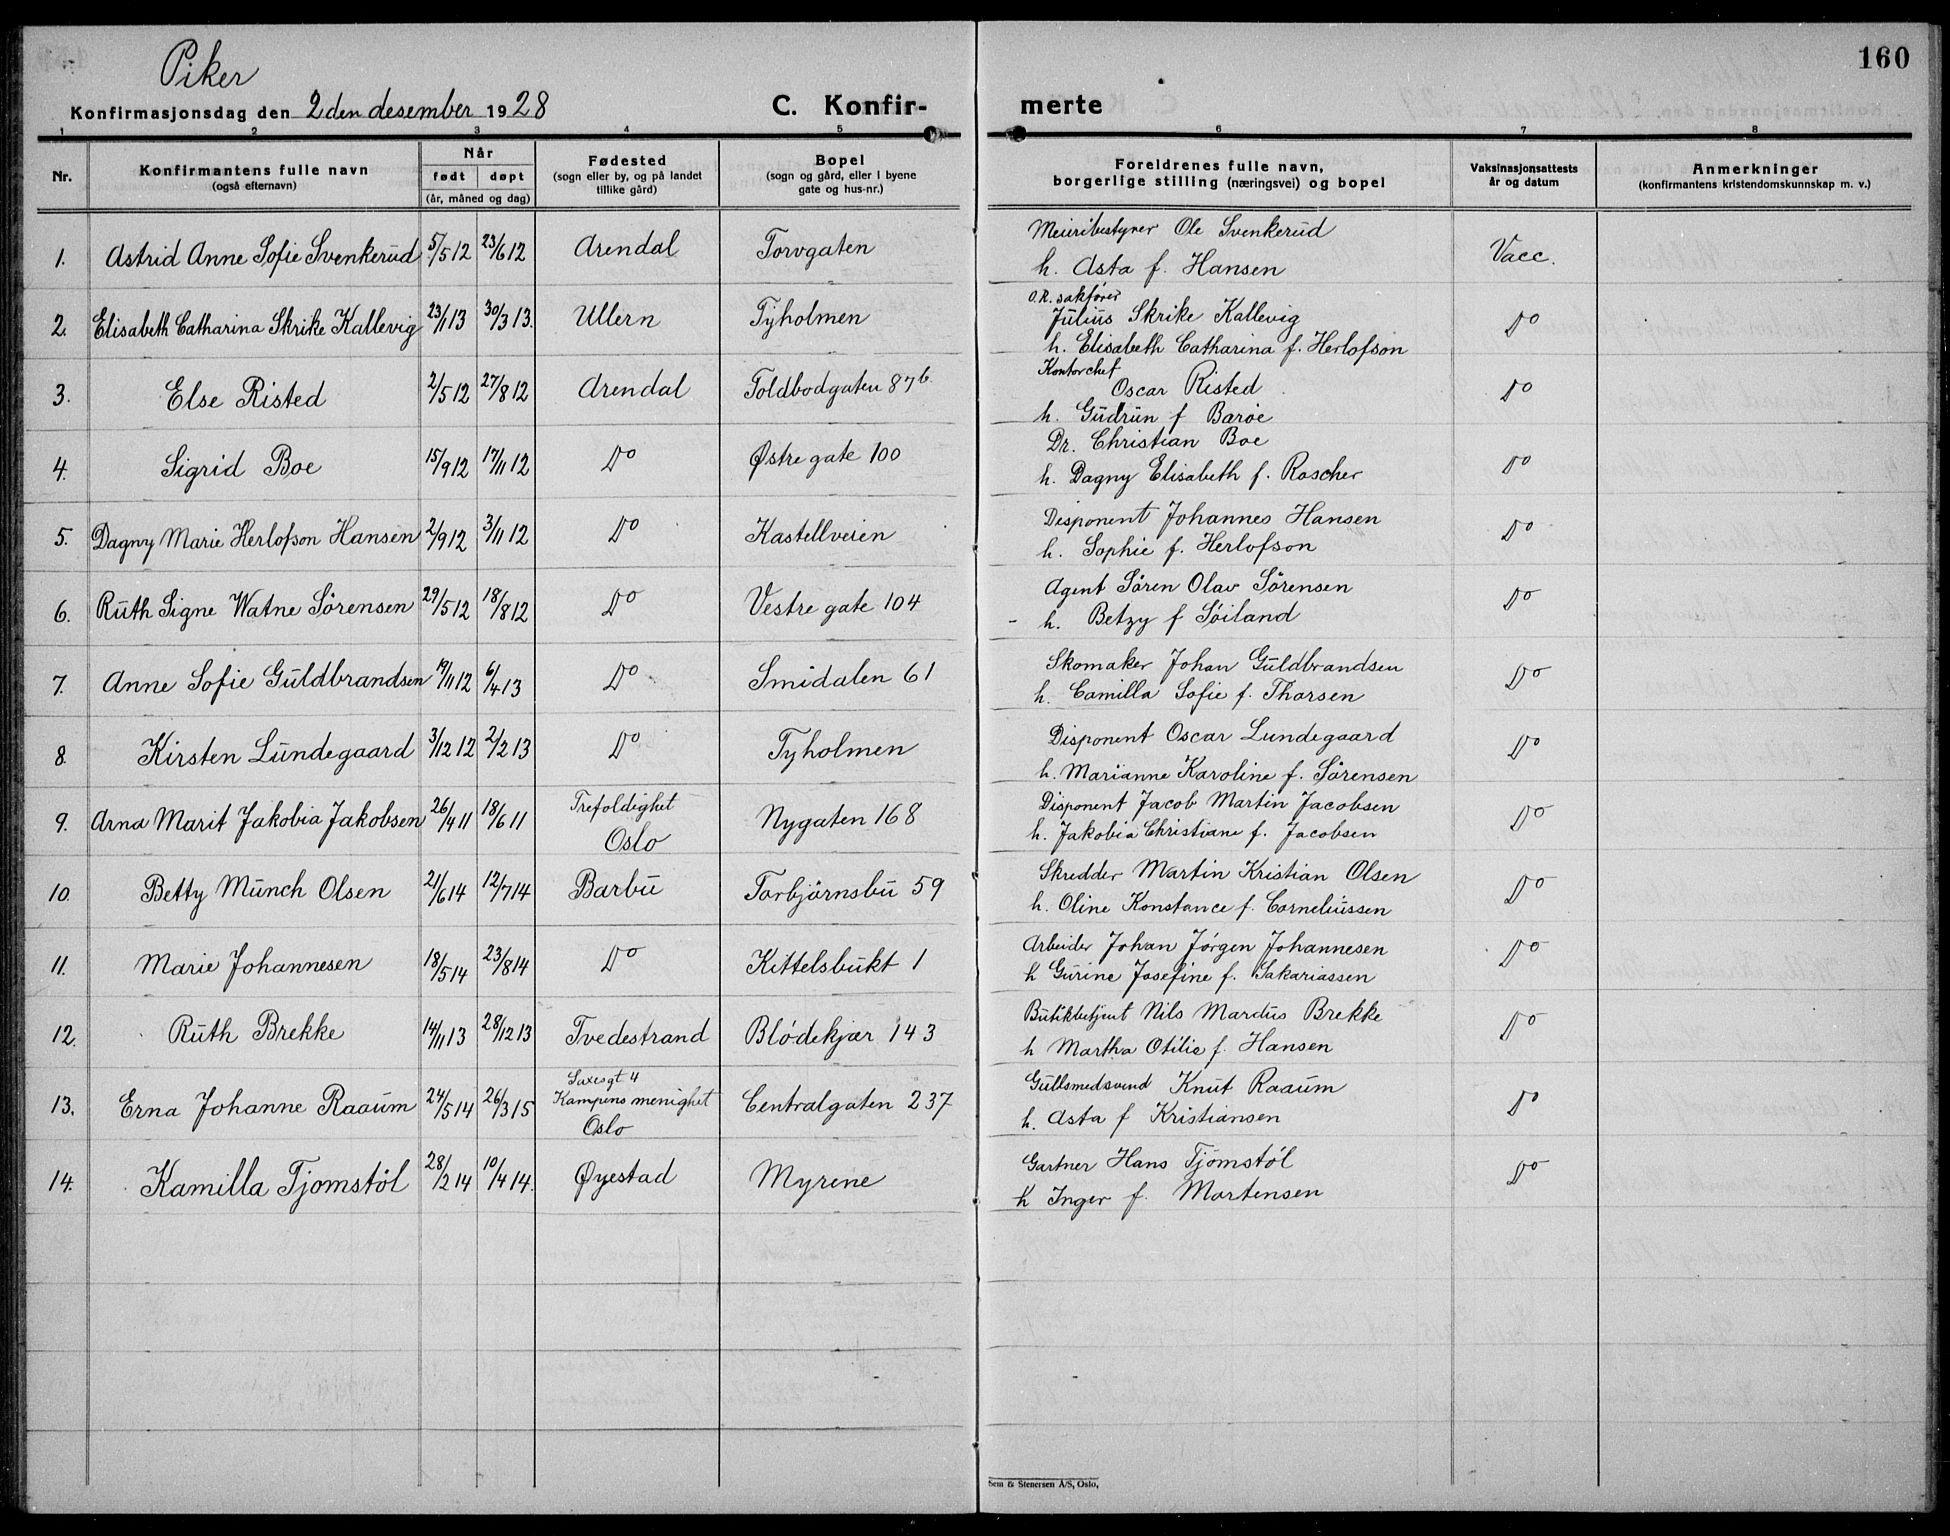 160
Piker
Konfirmasjonsdag den 2den desember 1928
C. Konfir- merte
1 2 3 4 5 6 7 8
Nr.
Konfirmantens fulle navn
(også efternavn)
Når
født døpt
(år, måned og dag)
Fødested
(sogn eller by, og på landet
tillike gård)
Bopel
(sogn og gård, eller i byene
gate og hus-nr.)
Foreldrenes fulle navn,
borgerlige stilling (næringsvei) og bopel
Vaksinasjonsattests
år og datum
Anmerkninger
(konfirmantens kristendomskunnskap m. v.)
1. Astrid Anne Sofie Svenkerud 5/5 12 23/6 12 Arendal Torvgaten Meieribestyrer Ole Svenkerud
h. Asta f. Hansen Vacc.
2. Elisabeth Catharina Skrike Kallevig 23/1 13 30/3 13. Ullern Tyholmen O.R. sakfører
Julius Skrike Kallevig
h. Elisabeth Catharina f. Herlofson Do
3. Else Risted 2/5 12 27/8 12 Arendal Toldbodgaten 87b. Kontorchef
Oscar Risted
h. Gudrun f Barøe Do
4. Sigrid Boe 15/9 12 17/11 12 Do Østre gate 100 Dr. Christian Boe
h. Dagny Elisabeth f. Roscher Do
5. Dagny Marie Herlofson Hansen 2/9 12 3/11 12 Do Kastellveien Disponent Johannes Hansen
h. Sophie f. Herlofson Do
6. Ruth Signe Watne Sörensen 29/5 12 18/8 12 Do Vestre gate 104 Agent Sören Olav Sörensen
h. Betzy f Söiland Do
7. Anne Sofie Guldbrandsen 19/11 12 6/4 13 Do Smidalen 61 Skomaker Johan Guldbrandsen
h. Camilla Sofie f. Thorsen Do
8. Kirsten Lundegaard 3/12 12 2/2 13 Do Tyholmen Disponent Oscar Lundegaard
h. Marianne Karoline f. Sörensen Do
9. Arna Marit Jakobia Jakobsen 26/4 11 18/6 11 Trefoldighet
Oslo Nygaten 168 Disponent Jacob Martin Jacobsen
h. Jakobia Christiane f. Jacobsen Do
10. Betty Munch Olsen 21/6 14 12/7 14 Barbu Torbjörnsbu 59 Skredder Martin Kristian Olsen
h. Oline Konstance f. Corneliussen Do
11. Marie Johannesen 18/5 14 23/8 14 Do Kittelsbukt 1 Arbeider Johan Jörgen Johannesen
h Gurine Josefine f. Sakariassen Do
12. Ruth Brekke 14/11 13 28/12 13 Tvedestrand Blödekjær 143 Butikbetjent Nils Mardus Brekke
h Martha Otilie f. Hansen Do
13. Erna Johanne Raaum 24/5 14 26/3 15 Saxesgt 4
Kampens menighet
Oslo Centralgaten 237 Gullsmedsvend Knut Raaum
h. Asta f Kristiansen Do
14. Kamilla Tjomstöl 28/2 14 10/4 14. Øyestad Myrene Gartner Hans Tjomstöl
h Inger f. Mortensen Do
Sem & Stenersen A/S, Oslo.